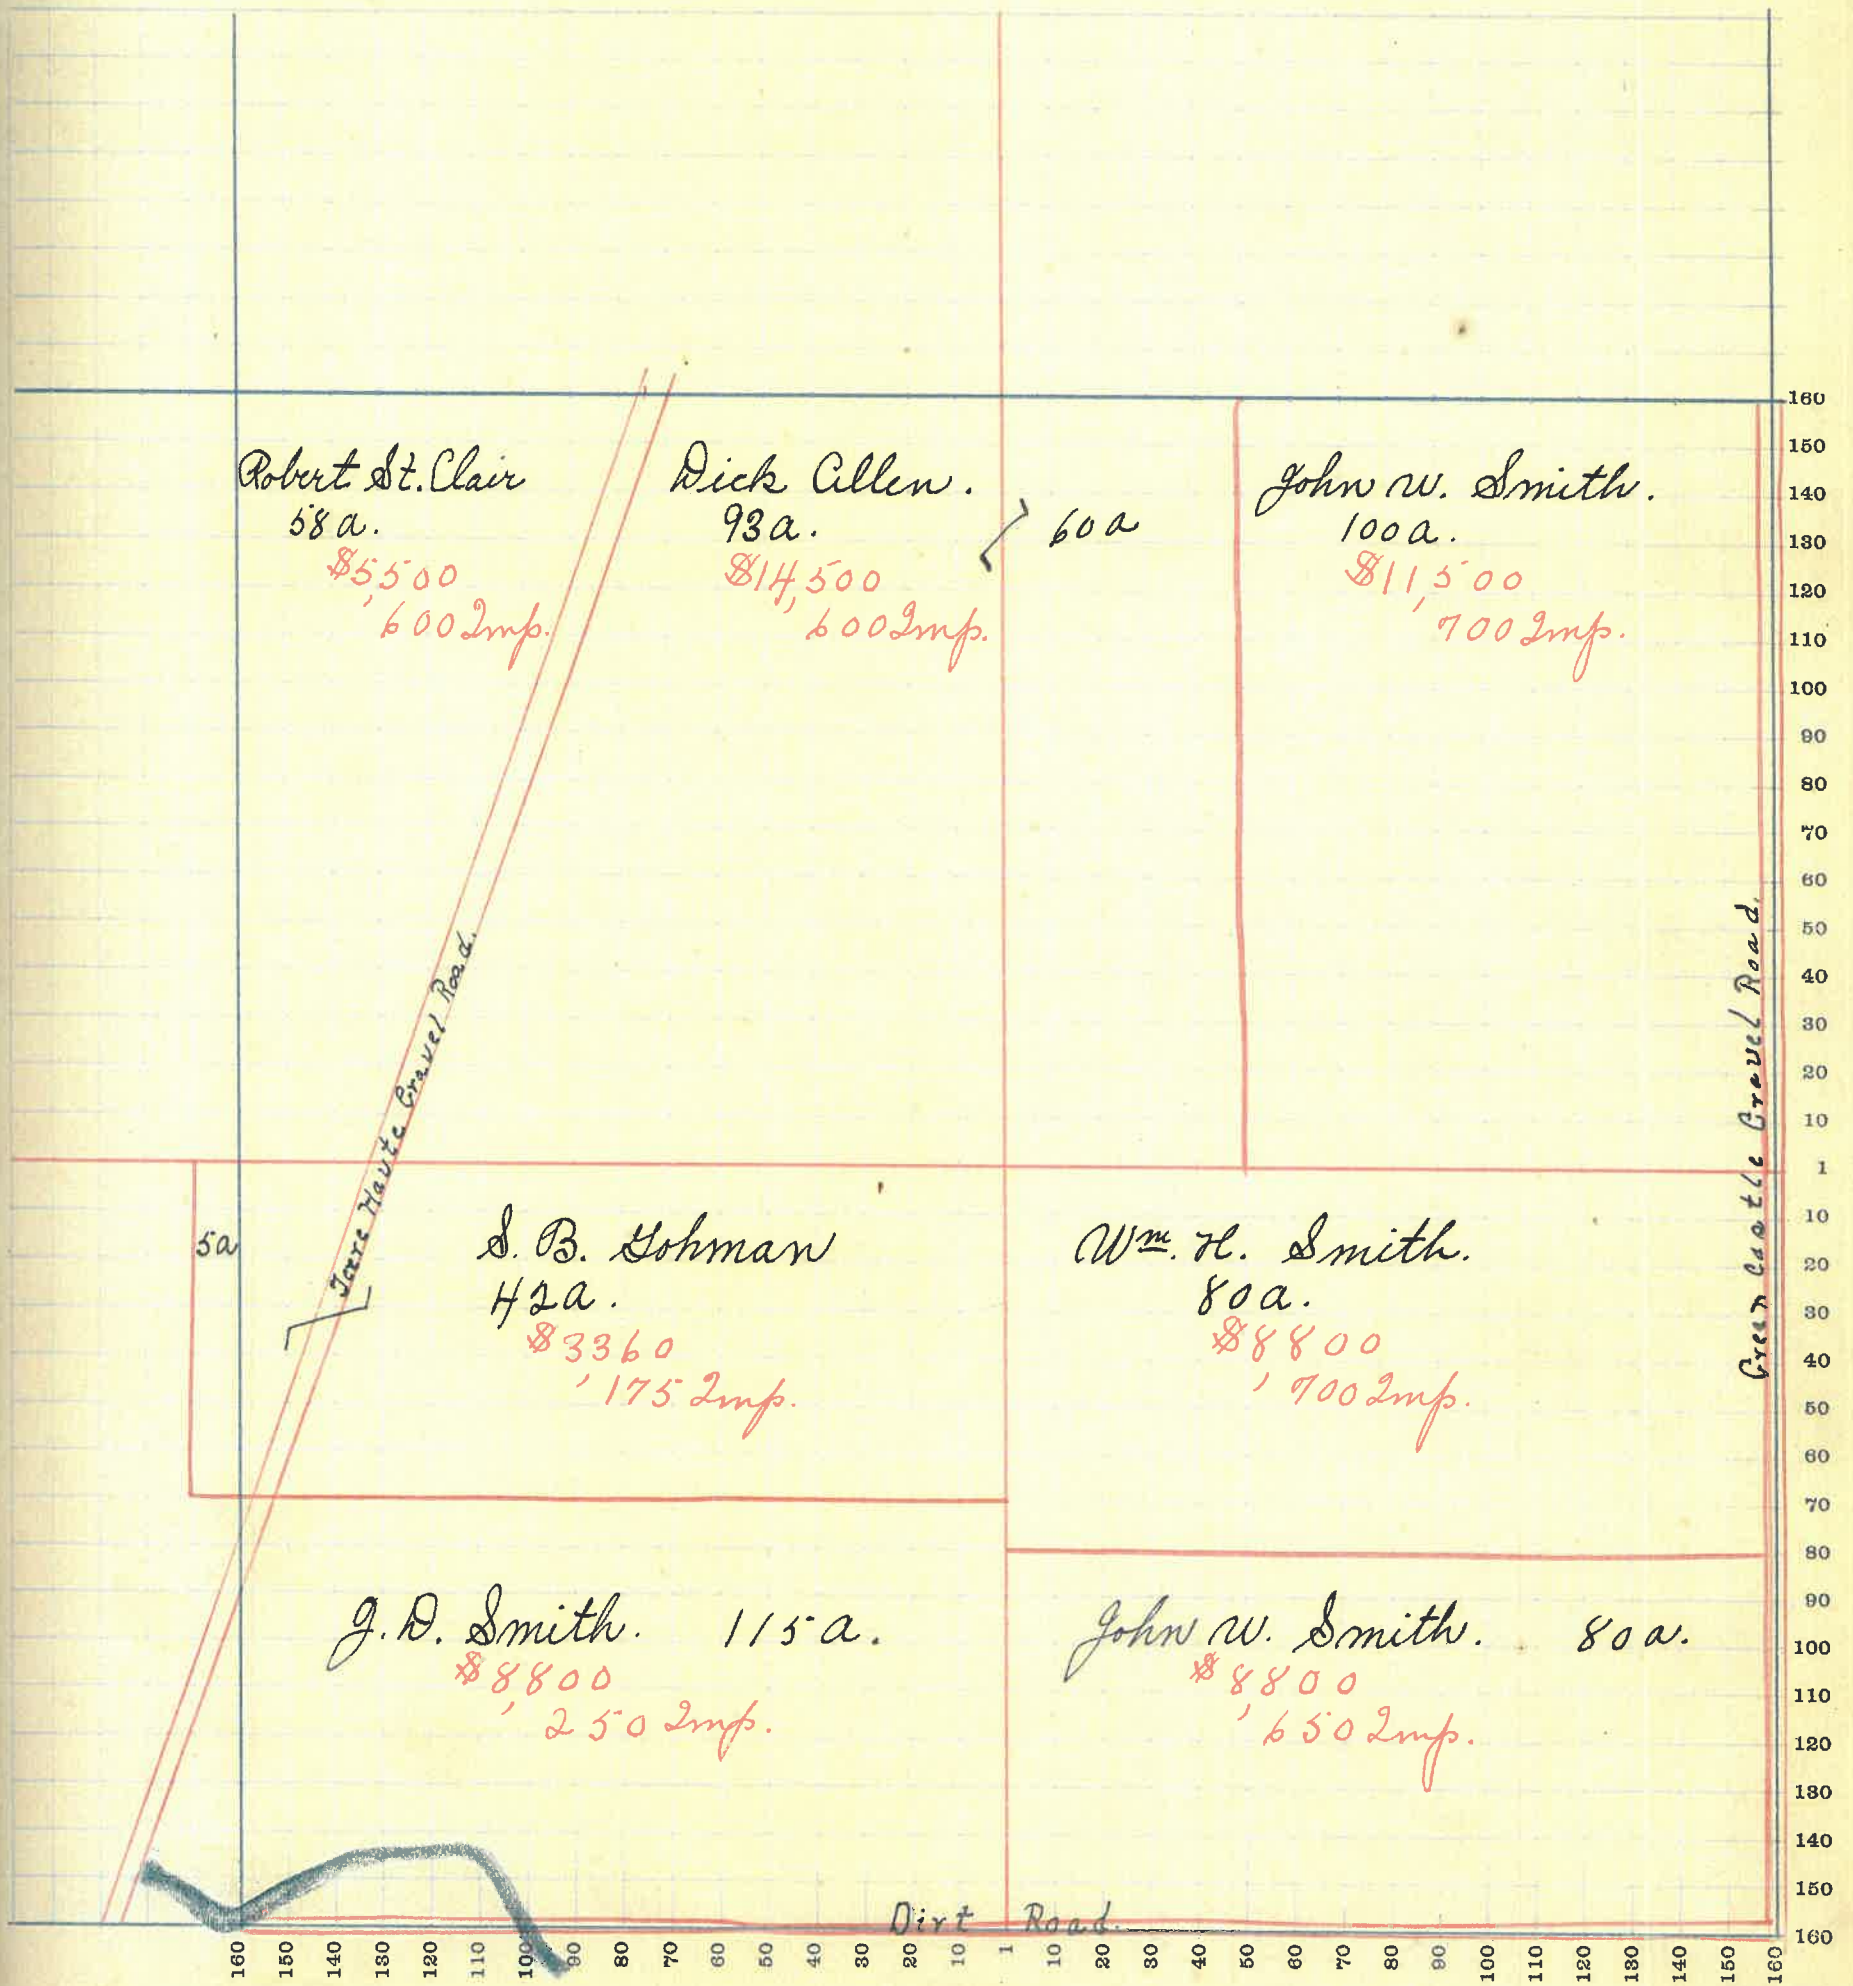 Robert St. Clair
58 a.
$5,500
600 Imp.
Dick Allen.
93 a.
$14,500
600 Imp.
60 a
John W. Smith.
100 a.
$11,500
700 Imp.
Terre Haute Gravel Road.
Green Castle Gravel Road.
5a
S. B. Gohman
42 a.
$3360
175 Imp.
Wm. H. Smith.
80 a.
$8800
700 Imp.
J. D. Smith. 115 a.
$8800
250 Imp.
John W. Smith. 80 a.
$8800
650 Imp.
Dirt Road.
160
150
140
130
120
110
100
90
80
70
60
50
40
30
20
10
1
10
20
30
40
50
60
70
80
90
100
110
120
130
140
150
160
160 150 140 130 120 110 100 90 80 70 60 50 40 30 20 10 1 10 20 30 40 50 60 70 80 90 100 110 120 130 140 150 160